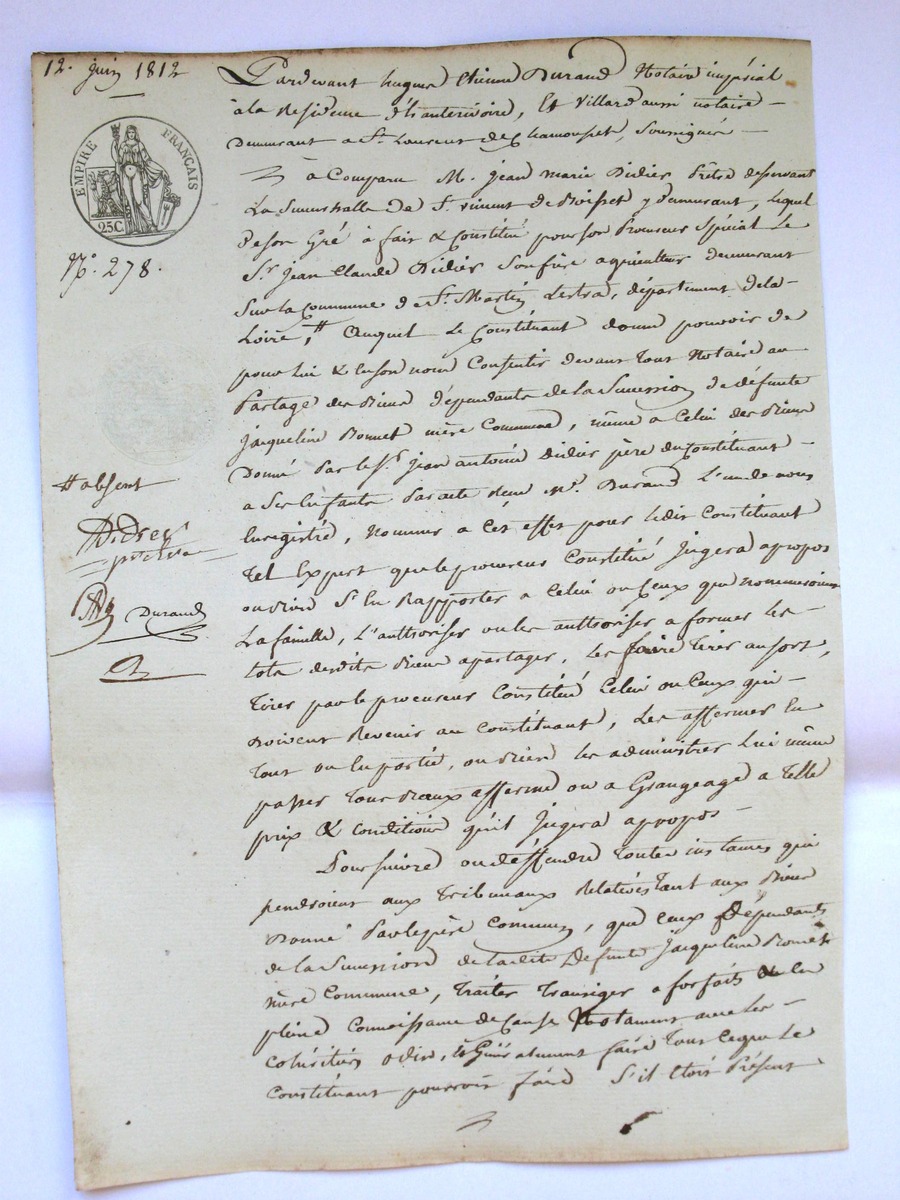 12. juin 1812
EMPIRE FRANÇAIS
25C
N.º 278.
# absent
Didier
ptre
Durand
Pardevant hugues Etienne Durand Notaire impérial
à la Residence, Et Villard aussi notaire
Demeurant a St. Laurent de Chamousset, Soussignés
à Comparu M. jean marie Didier Prêtre desservant
La Succursalle de St. vincent de Boisset y demeurant, Lequel
de son Gré à fait & Constitué pour son Procureur Spécial Le
Sr. jean Claude Didier Son frère agriculteur demeurant
Sur la Commune de St. Martin Lestra, département de la
Loire, # Auquel Le Constituant donne pouvoir de
pour Lui & En son nom Consentir devant tout Notaire au
Partage des Biens dépendants de la Succession de défunte
jacqueline Bonnet mère Commune, même a Celui des Biens
Donné Par le Sr. jean antoine didier père du Constituant
a Ses Enfants Par acte Reçu Me. Durand L'un de nous
Enregistré, nommer a Cet effet pour Ledit Constituant
tel Expert que le procureur Constitué jugera apropos
ou bien S'En Rapporter a Celui ou Ceux que nommeroient
La famille, L'authoriser ou les authoriser a former les
lots desdits Biens a partager, Les faire tirer au sort,
tirer par le procureur Constitué Celui ou Ceux qui
Doivent Revenir au Constituant, Les affermer En
tout ou En partie, ou bien les administrer Lui même
passer tous Beaux afferme ou a Grangeage a telle
prix & conditions qu'il jugera apropos
Poursuivre ou deffendre toutes instances qui
pendroient aux tribunaux Relatives tant aux Biens
Donné Par le père Commun, que ceux dépendants
de la Succession de ladite Defunte jacqueline Bonnet
mère Commune, traiter transiger a forfait En
pleine Connoissance de Cause Notament avec Les
Cohéritiers Didier, & Généralement faire tout Ceque Le
Constituant pourroit faire S'il Etoit Présent